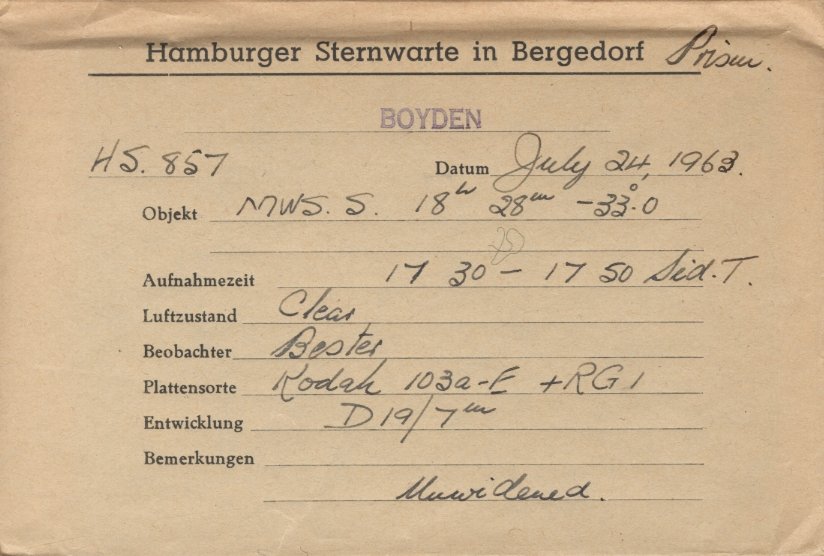 Hamburger Sternwarte in Bergedorf Prism.
BOYDEN
HS. 857 Datum July 24, 1963.
Objekt MWS. S. 18ʰ 28ᵐ -33°.0
Aufnahmezeit 17 30 – 17 50 Sid. T.
Luftzustand Clear
Beobachter Bester
Plattensorte Kodak 103a-E +RG1
Entwicklung D19/7ᵐ
Bemerkungen
Unwidened.